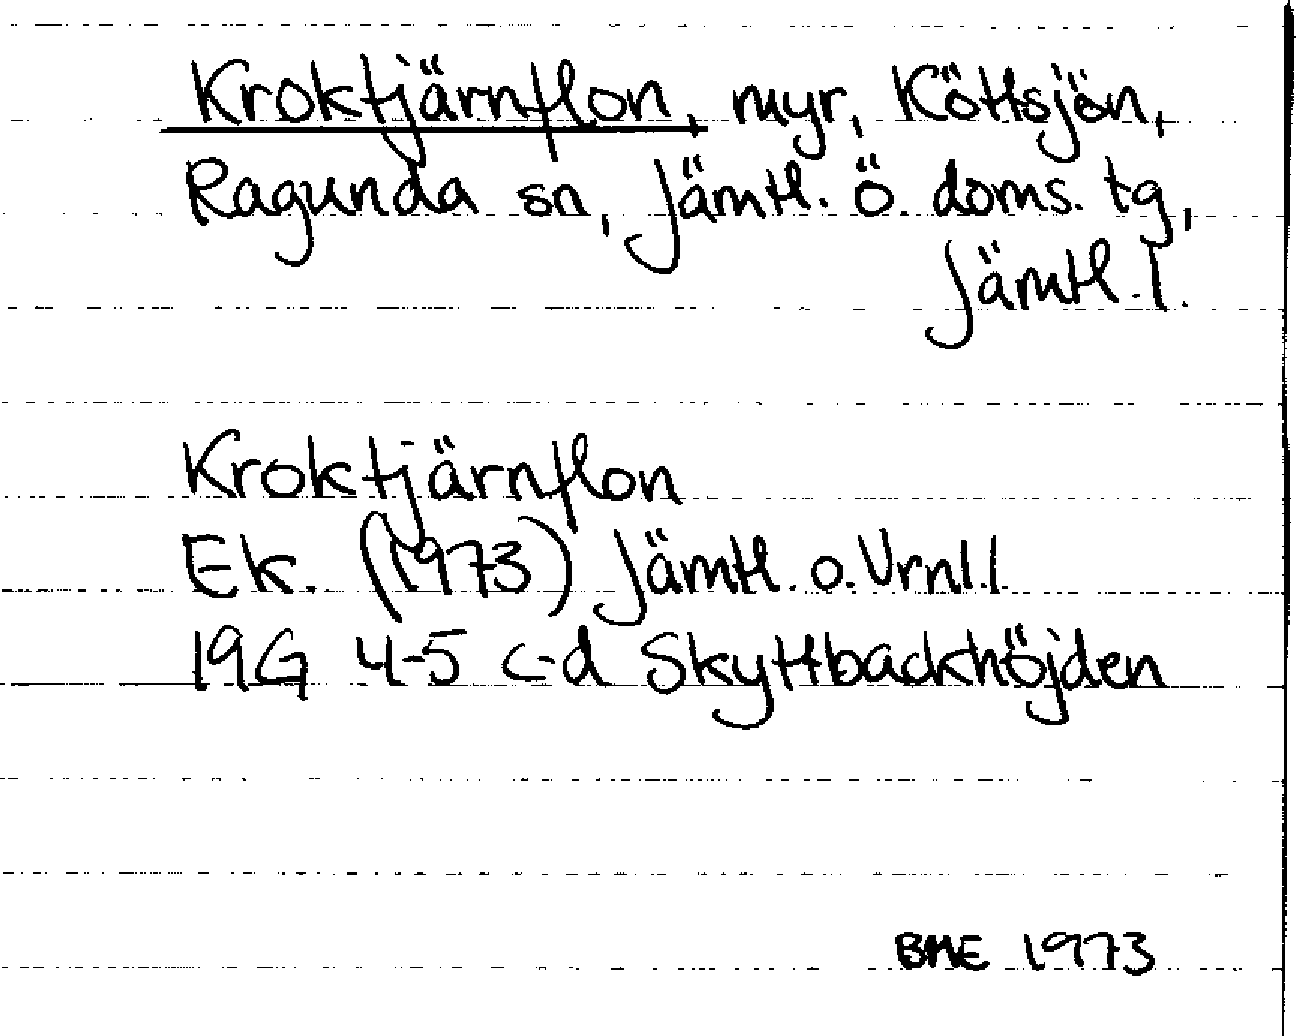 Kroktjärnflon, myr, Köttsjön,
Ragunda sn, Jämtl. ö. doms. tg,
Jämtl. l.
Kroktjärnflon
Ek. (1973) Jämtl. o. Vrnl. l.
19G 4-5 c-d Skyttbackhöjden
BME 1973